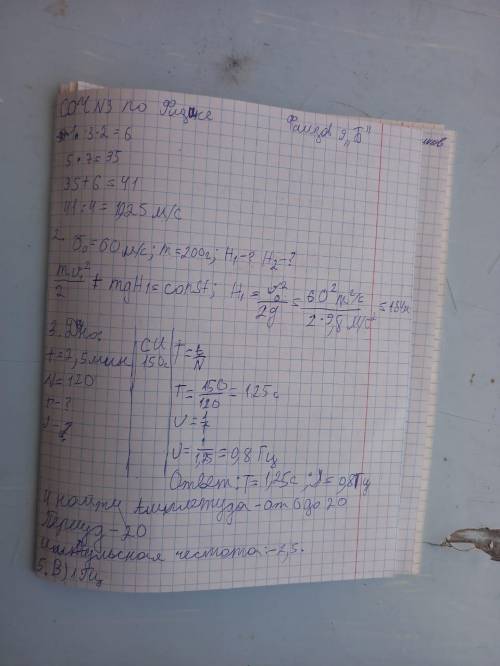 СОЧ №3 по Физике Фаиза 9 „Б"
1. 3·2=6
5·7=35
35+6=41
41:4=10,25 м/с
2. υ₀=60 м/с; m=200г; H₁-? H₂-?
mυ₀²/2 + mgH₁=const; H₁ = υ₀²/2g = 60² м²/с / 2·9,8 м/с = 184м
3. Дано: | СИ | T=t/N
t=2,5мин | 150с
N=120 T=150/120=1,25с
T-? υ=1/T
υ-? υ=1/1,25=0,8Гц
Ответ: T=1,25с; υ=0,8Гц
4 найти Амплитуда-от 6 до 20
Период-20
частота:-2,5.
5. В) 1Гц